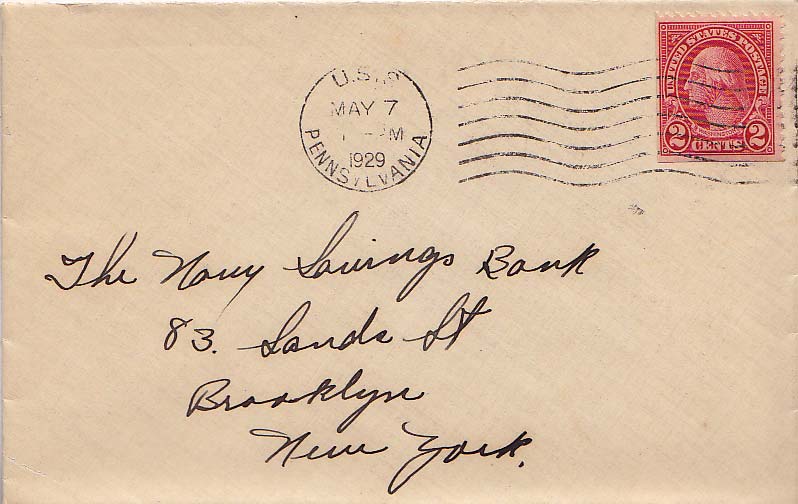 U.S.S.
MAY 7
M
1929
PENNSYLVANIA
UNITED STATES POSTAGE
2 CENTS 2
The Navy Savings Bank
83. Sands St
Brooklyn
New York.